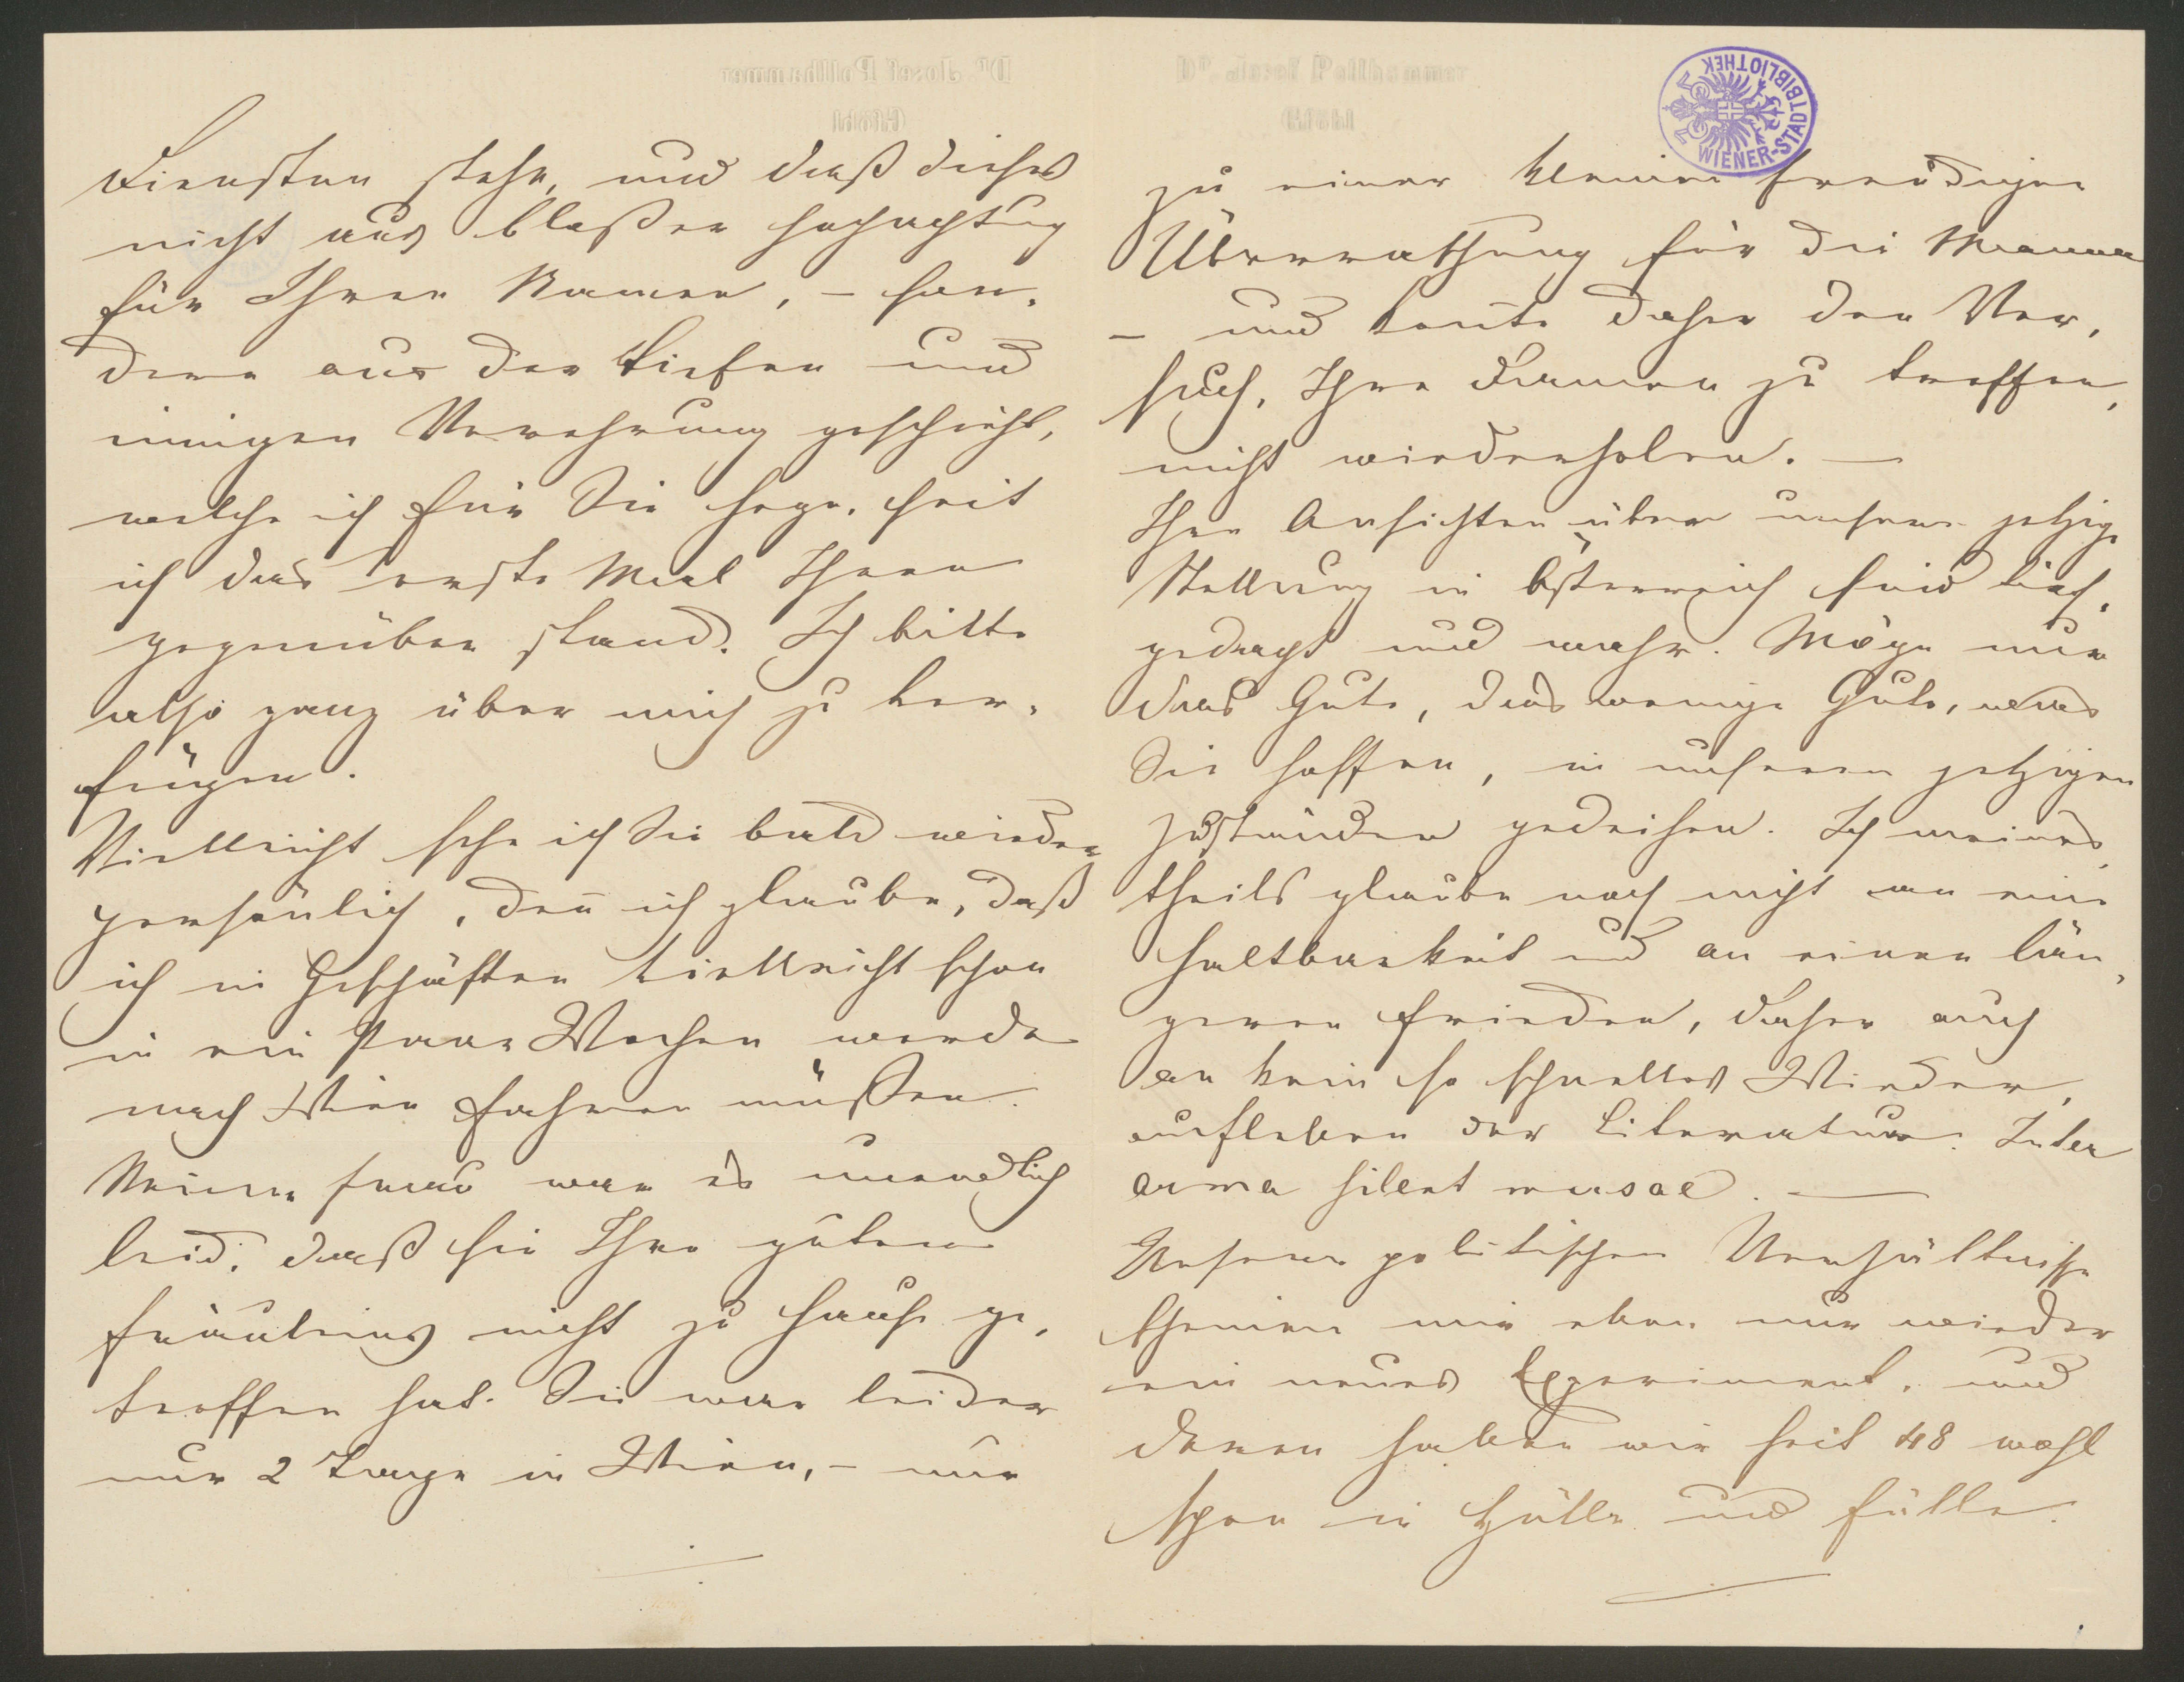 Diensten stehe, und daß dieses
nicht aus bloßer Hochachtung
für Ihren Namen, – son-
dern aus der tiefen und
innigen Verehrung geschieht,
welche ich für Sie hege, seit
ich das erste Mal Ihnen
gegenüber stand. Ich bitte
also ganz über mich zu ver-
fügen.
Vielleicht sehe ich Sie bald wieder
persönlich, den̄ ich glaube, daß
ich in Geschäften vielleicht schon
in ein Paar Wochen werde
nach Wien fahren müßen.
Meiner Frau war es unendlich
leid, daß sie Ihre guten
Fräuleins nicht zu Hause ge-
troffen hat. Sie war leider
nur 2 Tage in Wien, – nur
Dr. Josef Pollhammer
Gföhl
WIENER-STADTBIBLIOTHEK
zu einer kleinen freudigen
Überraschung für die Mama
– und konnte daher den Ver-
such, Ihre Damen zu treffen,
nicht wiederholen. –
Ihre Ansichten über unsere jetzige
Stellung in Österreich sind tief-
gedacht und wahr. Möge nur
das Gute, das wenige Gute, was
Sie hoffen, in unseren jetzigen
Zuständen gedeihen. Ich meines-
theils glaube noch nicht an eine
Haltbarkeit und an einen län-
geren Frieden, daher auch
an kein so schnelles Wieder-
aufleben der Literatur. Inter
arma silent musae. –
Unsere politischen Verhältnisse
scheinen mir eben nur wieder
ein neues Experiment, und
deren haben wir seit 48 wohl
schon in Hülle und Fülle.